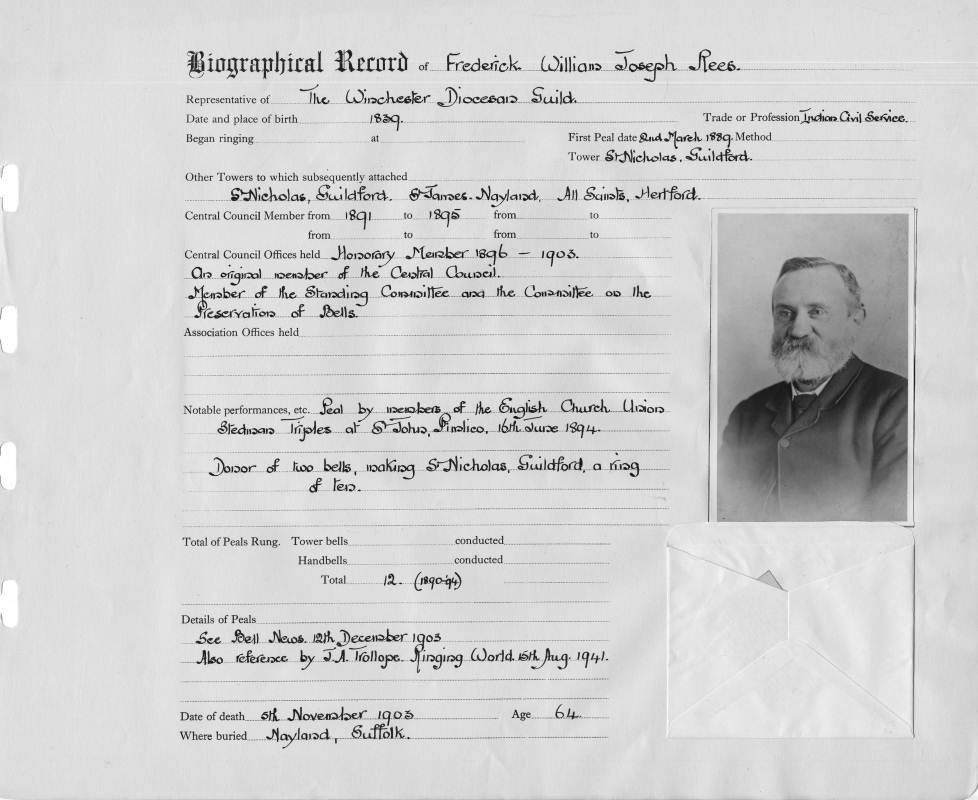 Biographical Record of Frederick William Joseph Rees.
Representative of The Winchester Diocesan Guild.
Date and place of birth 1839. Trade or Profession Indian Civil Service.
Began ringing at First Peal date 2nd March 1839. Method
Tower St Nicholas, Guildford.
Other Towers to which subsequently attached
St Nicholas, Guildford. St James. Nayland, All Saints, Hertford.
Central Council Member from 1891 to 1895 from to
from to from to
Central Council Offices held Honorary Member 1896 – 1903.
An original member of the Central Council.
Member of the Standing Committee and the Committee on the
Preservation of Bells.
Association Offices held
Notable performances, etc. Peal by members of the English Church Union
Stedman Triples at St John, Pimlico, 16th June 1894.
Donor of two bells, making St Nicholas, Guildford, a ring
of ten.
Total of Peals Rung. Tower bells conducted
Handbells conducted
Total 12. (1890-94)
Details of Peals
See Bell News. 12th December 1903
Also reference by J.A. Trollope. Ringing World. 15th Aug. 1941.
Date of death 5th November 1903 Age 64
Where buried Nayland, Suffolk.